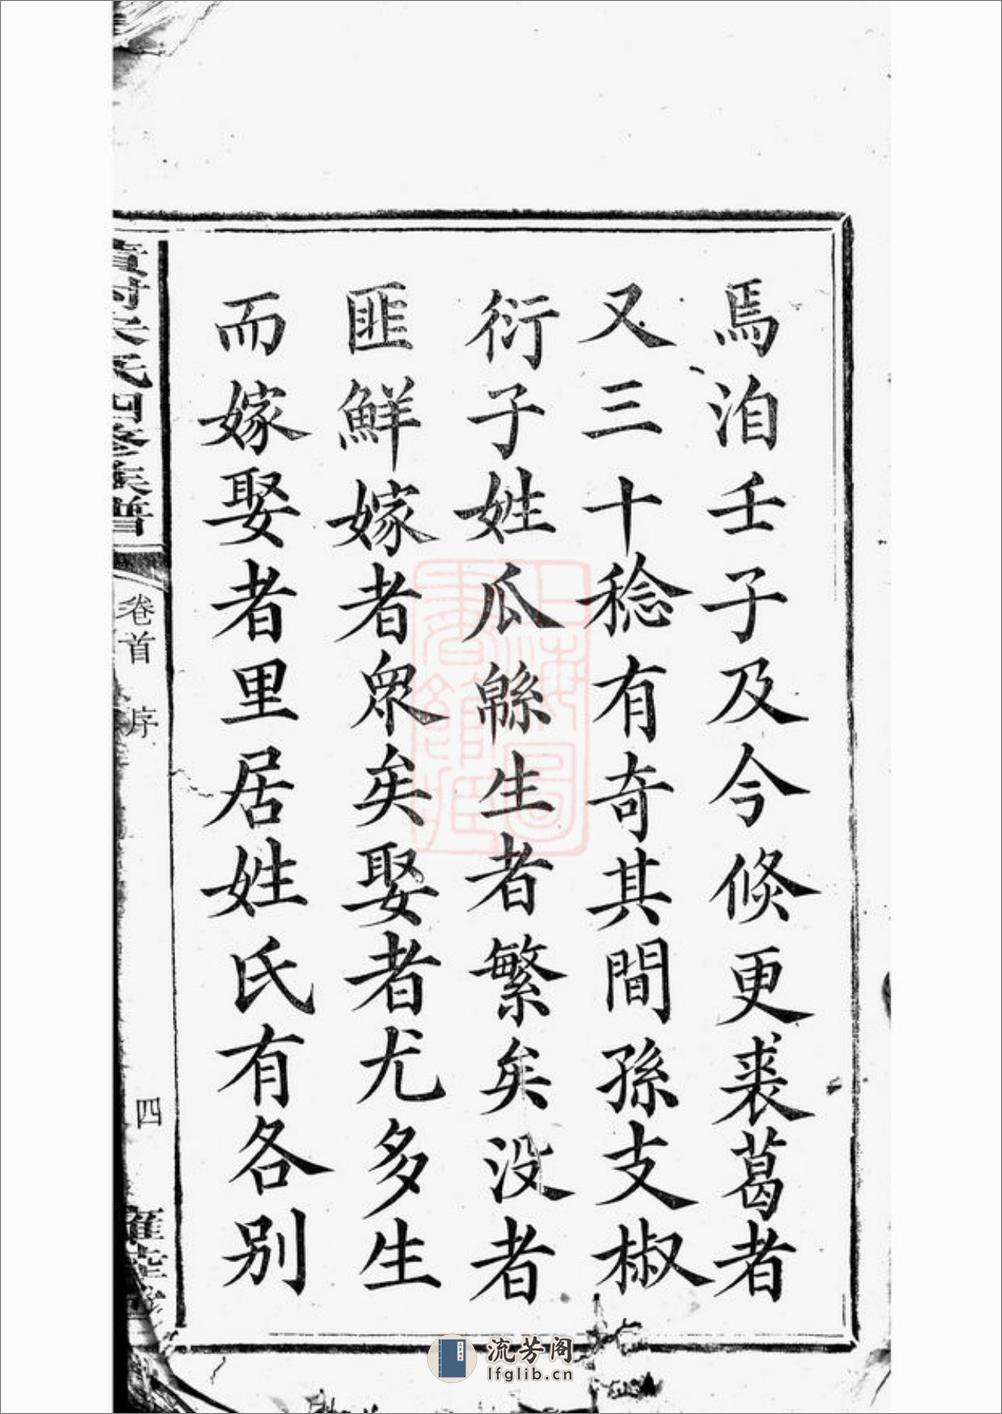 焉洎壬子及今倐更裘葛者
又三十稔有奇其間孫支椒
衍子姓瓜緜生者繁矣没者
匪鮮嫁者衆矣娶者尤多生
而嫁娶者里居姓氏有各别
氏四修族譜
卷首 序
四
流芳阁
lfglib.cn